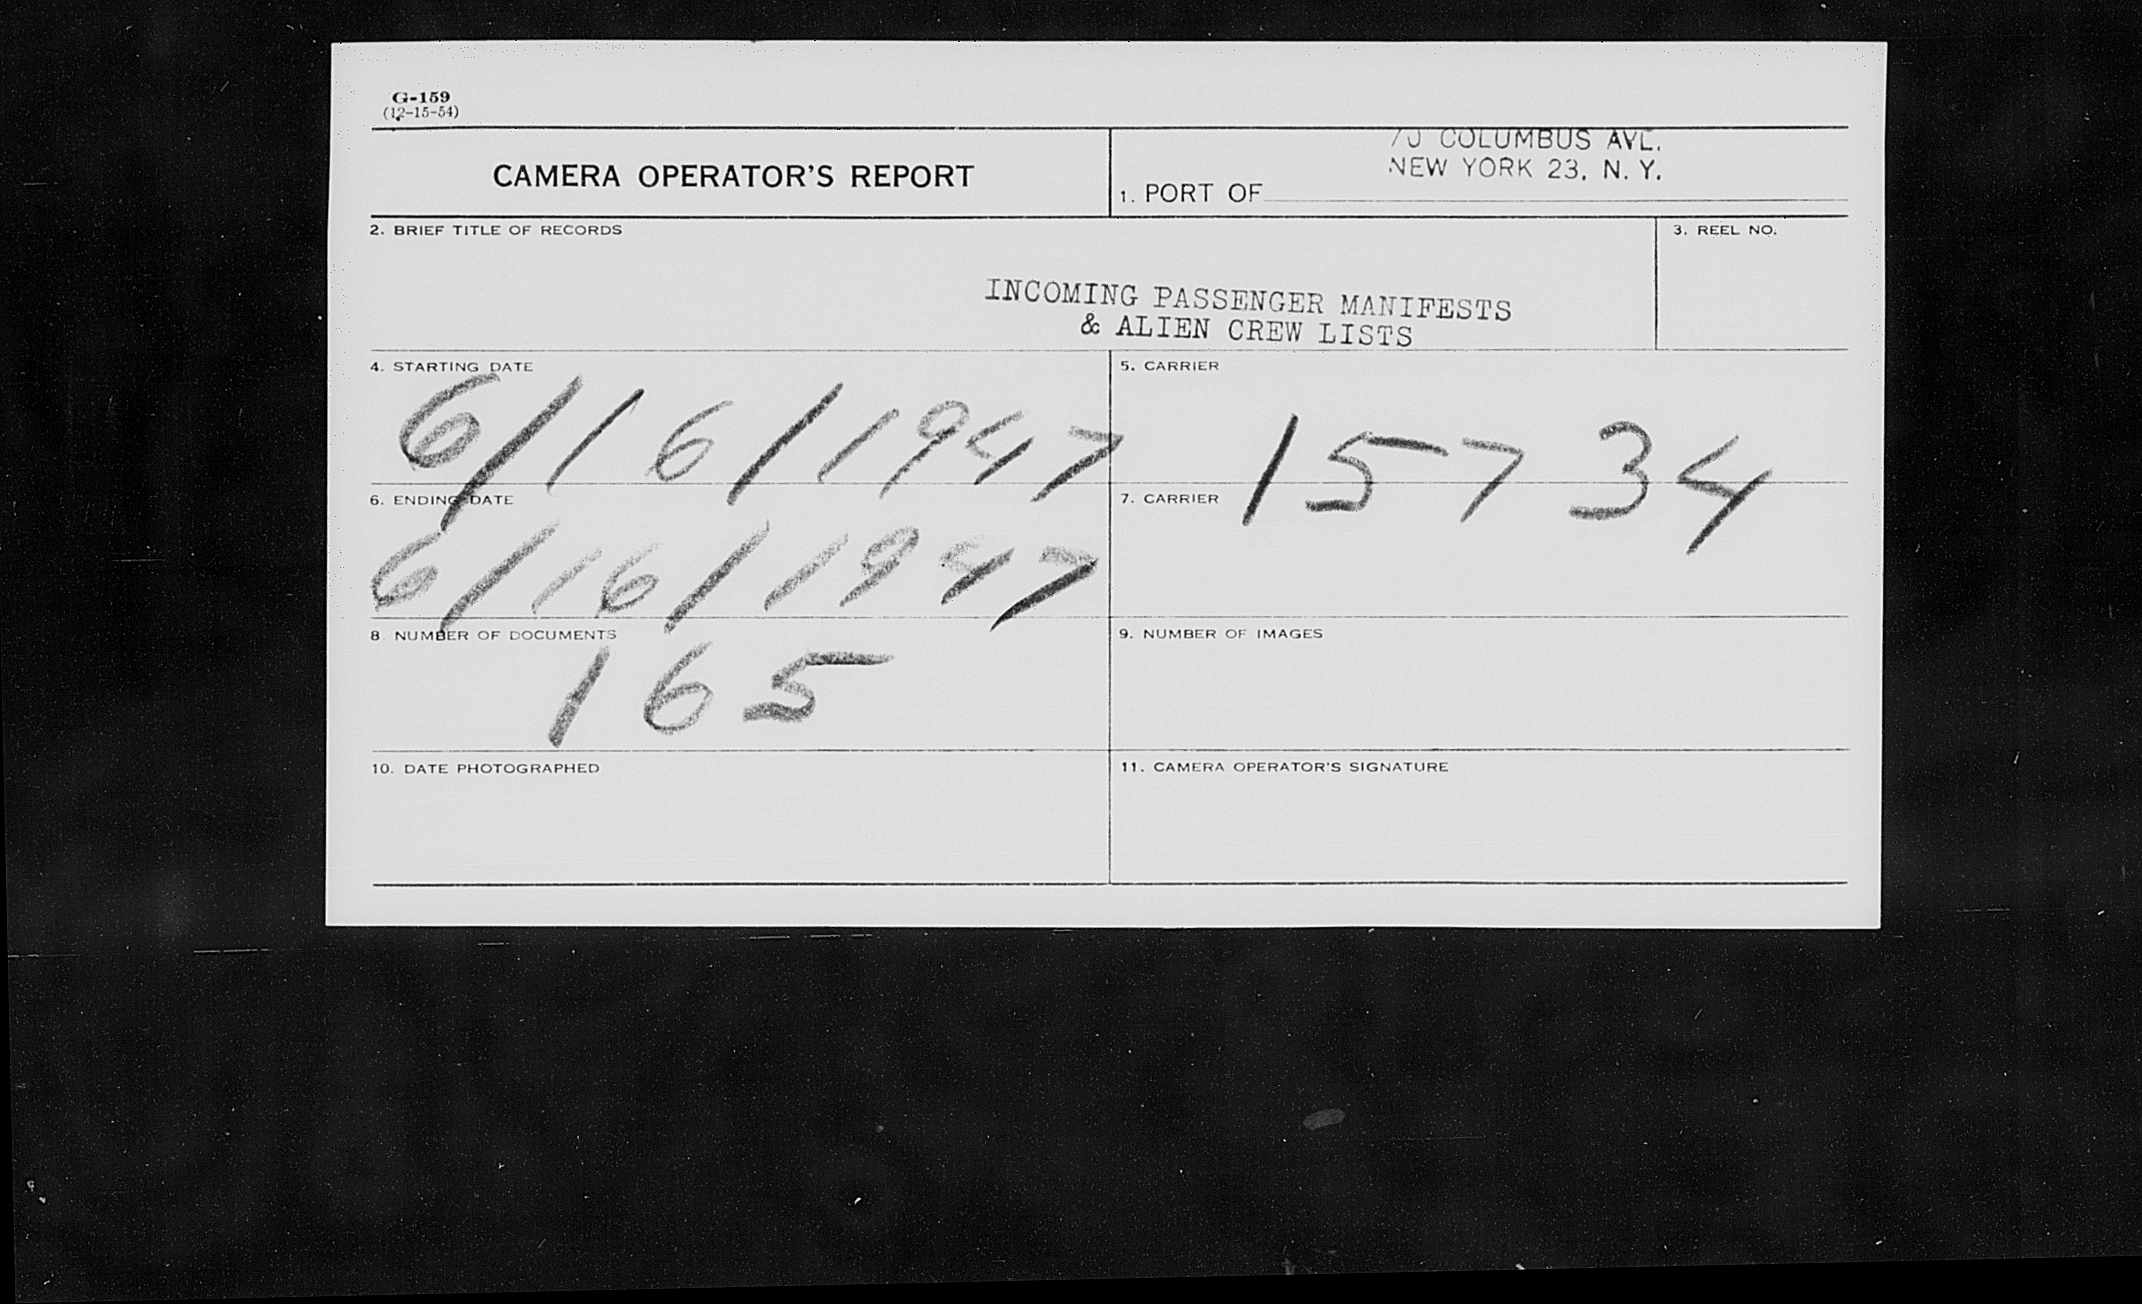 G-159
(12-15-54)
CAMERA OPERATOR'S REPORT
70 COLUMBUS AVE.
NEW YORK 23, N. Y.
1. PORT OF
2. BRIEF TITLE OF RECORDS
3. REEL NO.
INCOMING PASSENGER MANIFESTS
& ALIEN CREW LISTS
4. STARTING DATE
6/16/1947
5. CARRIER
15734
6. ENDING DATE
6/16/1947
7. CARRIER
8 NUMBER OF DOCUMENTS
165
9. NUMBER OF IMAGES
10. DATE PHOTOGRAPHED
11. CAMERA OPERATOR'S SIGNATURE